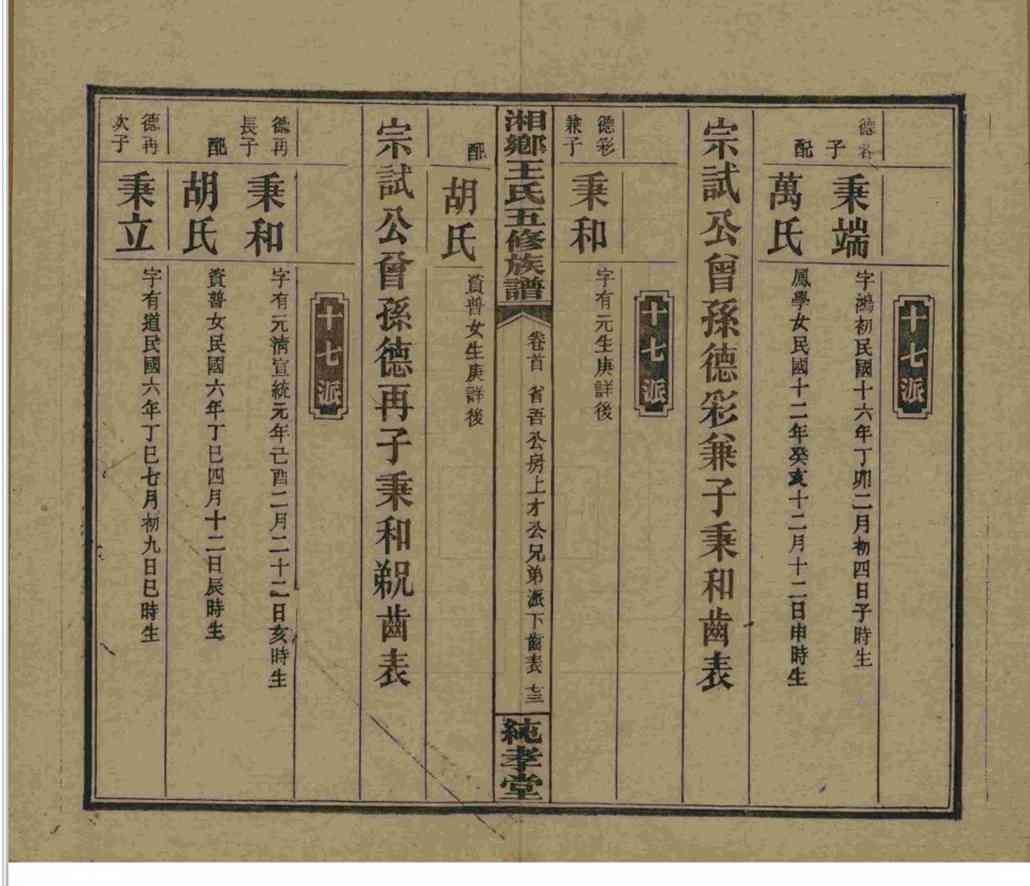 十七派
德
子
秉端
字鴻初民國十六年丁卯二月初四日子時生
配
萬氏
鳳學女民國十二年癸亥十二月十二日申時生
宗試公曾孫德彩兼子秉和齒表
十七派
德彩
兼子
秉和
字有元生庚詳後
湘鄉王氏五修族譜
卷首 省吾公房上才公兄弟派下齒表
純孝堂
配
胡氏
資普女生庚詳後
宗試公曾孫德再子秉和 齒表
十七派
德再
長子
秉和
字有元清宣統元年己酉二月二十二日亥時生
配
胡氏
資普女民國六年丁巳四月十二日辰時生
德再
次子
秉立
字有道民國六年丁巳七月初九日巳時生